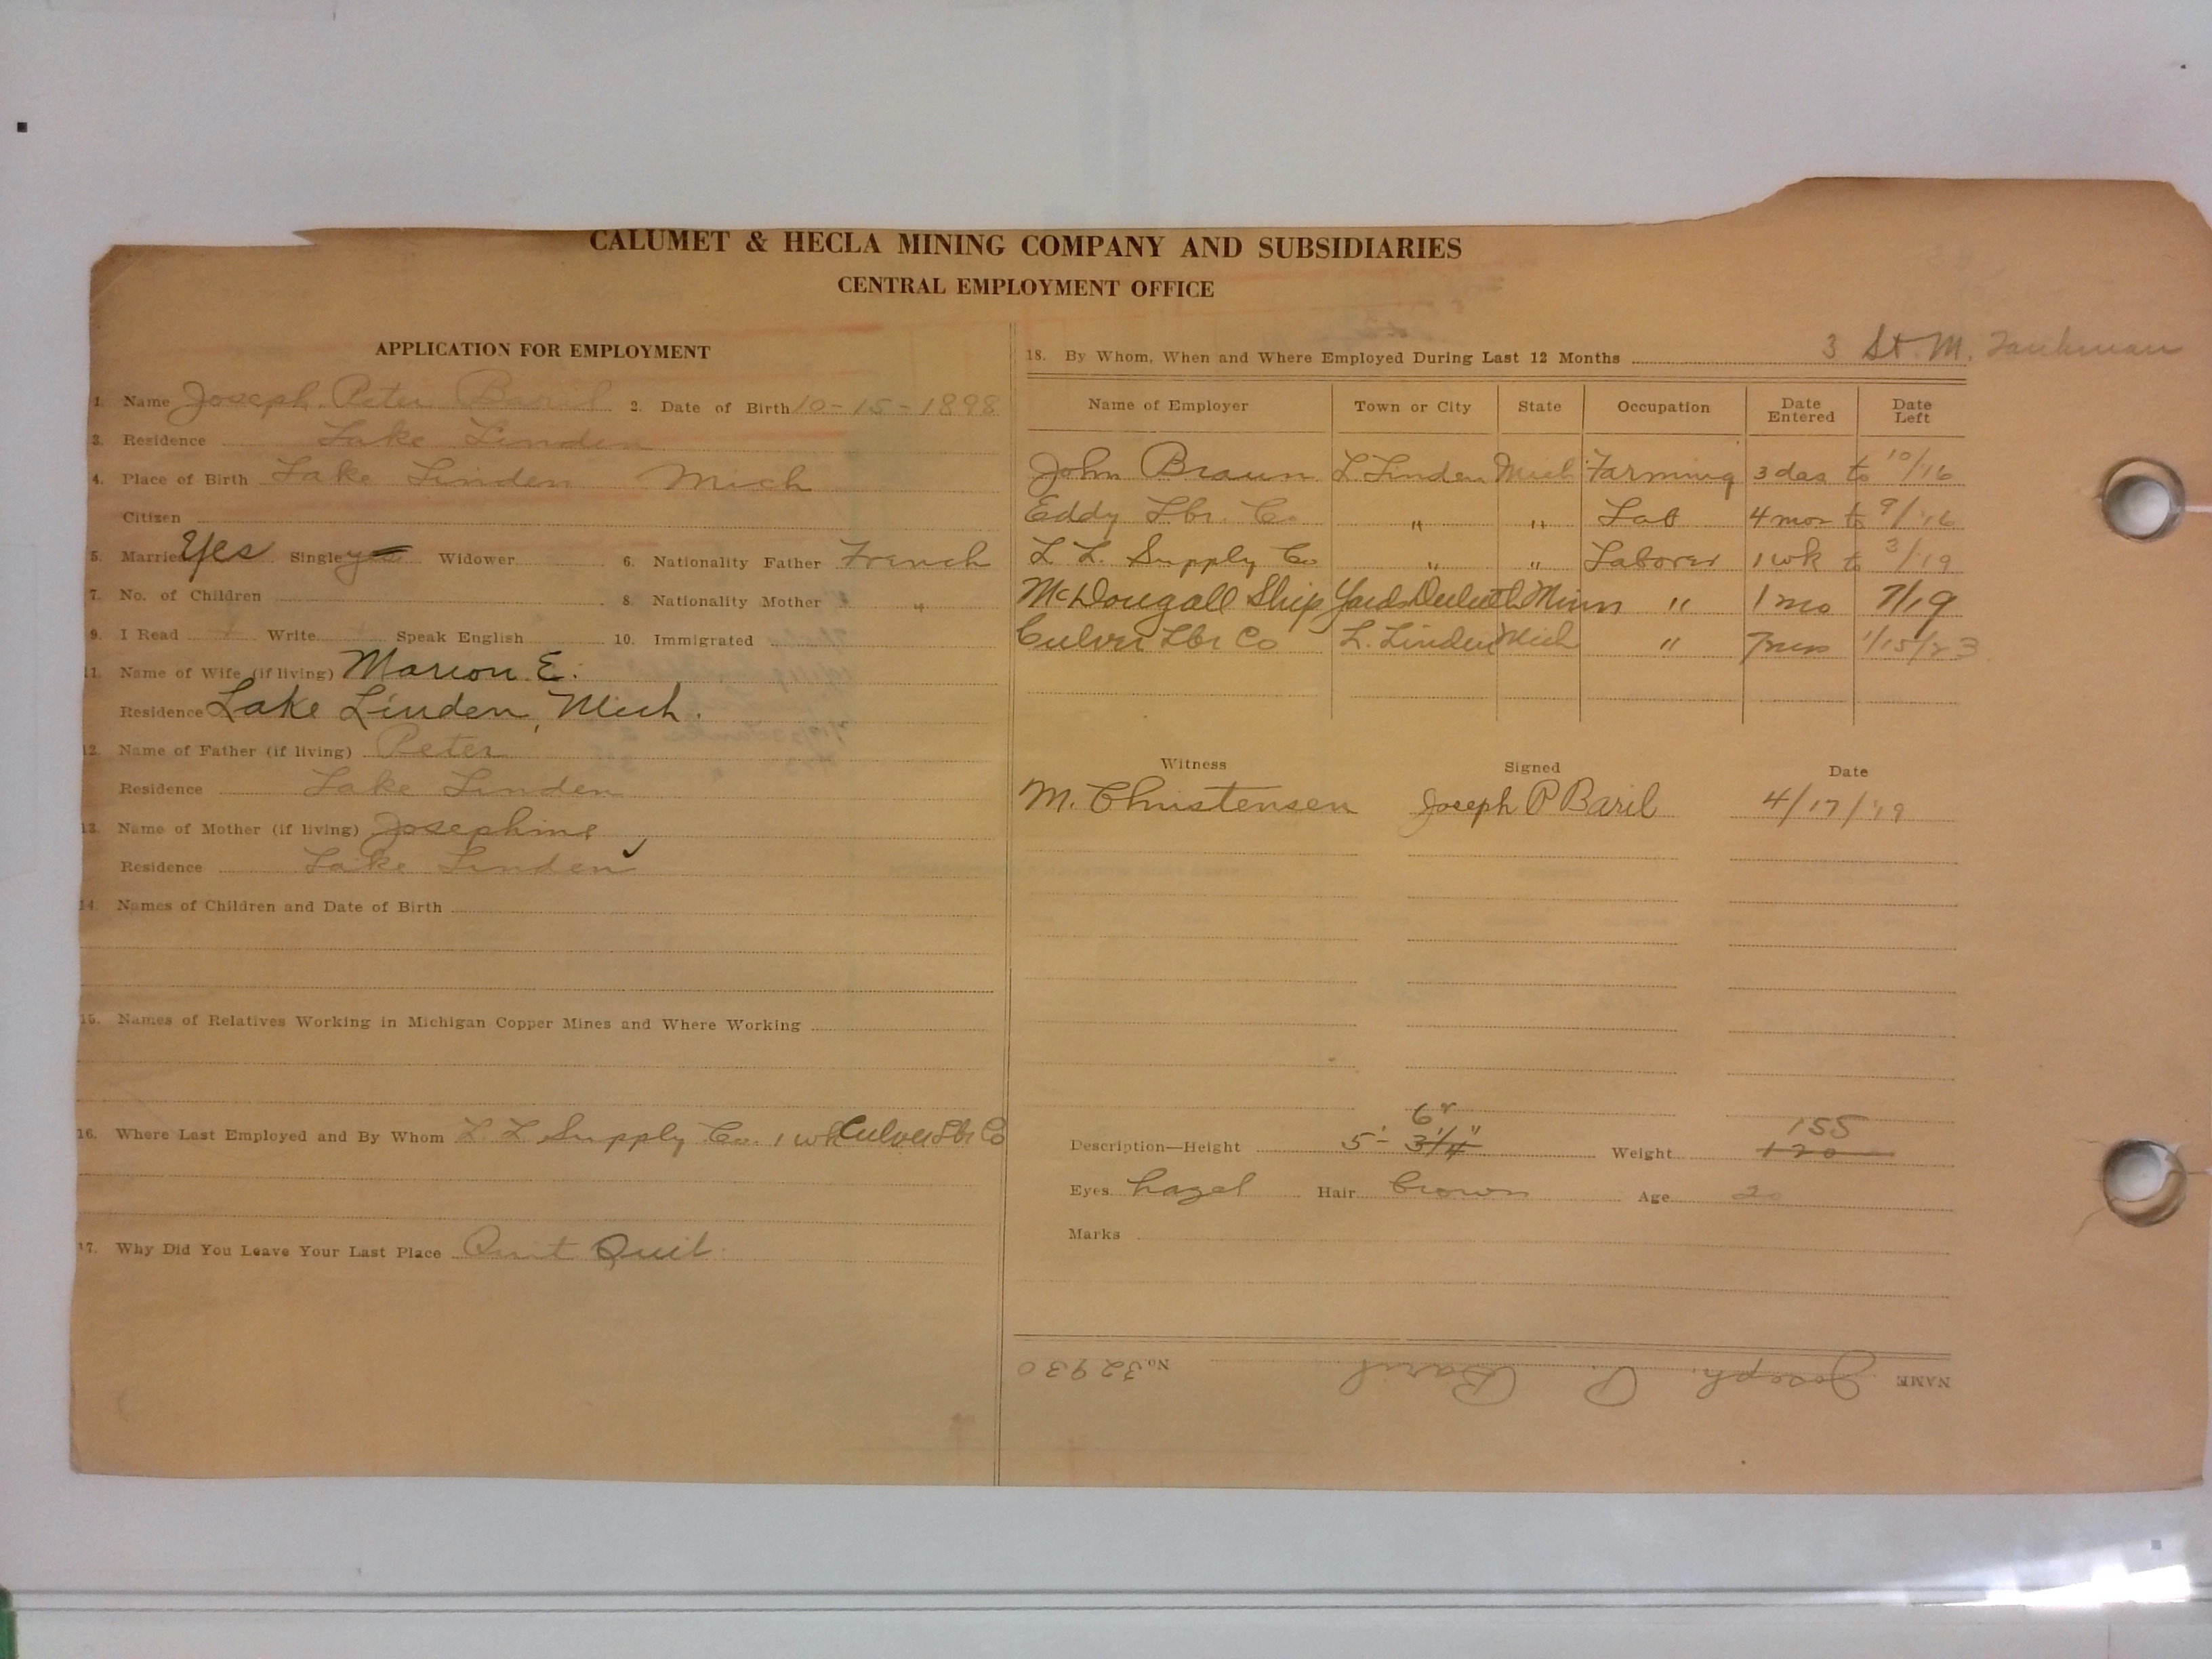 CALUMET & HECLA MINING COMPANY AND SUBSIDIARIES
CENTRAL EMPLOYMENT OFFICE
APPLICATION FOR EMPLOYMENT
1. Name Joseph Peter Baril 2. Date of Birth 10-15-1898
3. Residence Lake Linden
4. Place of Birth Lake Linden Mich
Citizen
5. Married Yes Single yes Widower 6. Nationality Father French
7. No. of Children 8. Nationality Mother "
9. I Read Write Speak English 10. Immigrated
11. Name of Wife (if living) Marion E.
Residence Lake Linden, Mich.
12. Name of Father (if living) Peter
Residence Lake Linden
13. Name of Mother (if living) Josephine
Residence Lake Linden
14. Names of Children and Date of Birth
15. Names of Relatives Working in Michigan Copper Mines and Where Working
16. Where Last Employed and By Whom L L Supply Co. 1 wk Culver Lbr Co
17. Why Did You Leave Your Last Place Quit Quit
3 St. M. Tankman
18. By Whom, When and Where Employed During Last 12 Months
Name of Employer Town or City State Occupation Date Entered Date Left
John Braun L Linden Mich Farming 3 das to 10/16
Eddy Lbr. Co " " Lab 4 mos to 9/16
L L. Supply Co " " Laborer 1 wk to 3/19
McDougall Ship Yards Duluth Minn " 1 mo 7/19
Culver Lbr Co L. Linden Mich " 1/15/23
Witness Signed Date
M. Christensen Joseph P Baril 4/17/19
6"
155
Description—Height 5'- 3 1/4" Weight 120
Eyes hazel Hair brown Age 20
Marks
NAME Joseph P. Baril No. 32930